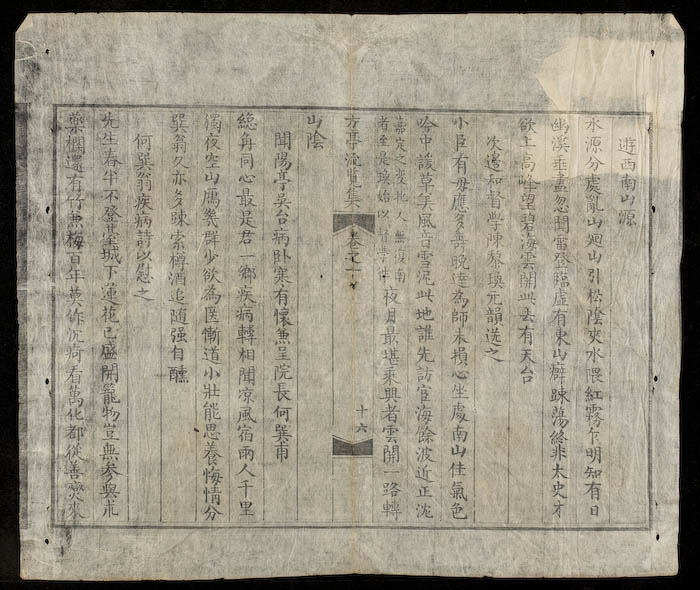 遊西南山源
水源分處亂山廻山引松陰夾水隈紅霧乍明知有日
幽溪垂盡忽聞雷登臨虛有東山癖踈蕩終非太史才
欲上高峰望碧海雲開此去有天台
次邊和督學陳黎瑍元韻送之
小臣有母應多壽晚達為師未損心坐處南山佳氣色
吟中諼草美風音雪泥此地誰先訪宦海餘波近正沈
嘉定之變北人無復南
者至是瑍始以督學往
夜月最堪乘興者雲開一路轉
方亭流覽集
卷之一
十六
山陰
聞陽亭吳台病臥寒有懷兼呈院長何巽甫
緫角同心最是君一鄉疾病轉相聞凉風宿雨人千里
濁夜空山鴈幾群少欲為医慚道小壯能思養悔情分
巽翁久亦多踈索樽酒追随强自醺
何巽翁疾病詩以慰之
先生春半不登臺城下蓮花已盛開籠物豈無参與朮
藥欄還有竹兼梅百年莫作沉痾看萬化都從善変來